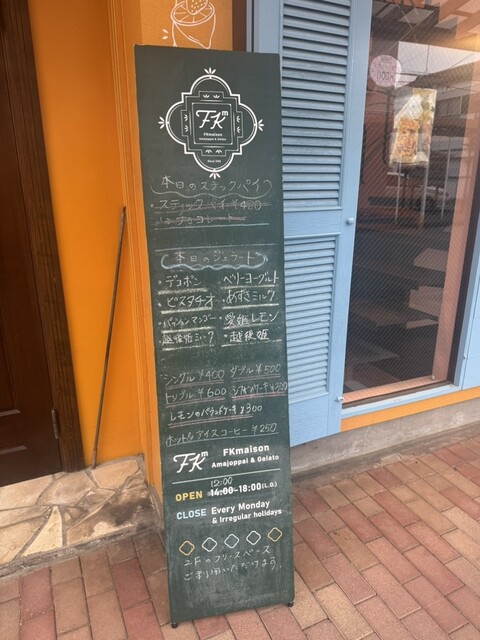 FKm
FKmaison
Amajoppai & Gelato
本日のスティックパイ
・スティックパイ ¥400
チョコレート
本日のジェラート
・デコポン ベリーヨーグルト
・ピスタチオ ・あずきミルク
・パッションマンゴー ・愛媛レモン
・越後姫ミルク ・越後姫
シングル ¥400 ダブル ¥500
トリプル ¥600 シフォンケーキ ¥350
レモンのパウンドケーキ ¥300
ホット&アイスコーヒー ¥250
FKm FKmaison
Amajoppai & Gelato
12:00
OPEN 14:00-18:00(L.O.)
CLOSE Every Monday
& Irregular holidays
2Fのフリースペース
ご利用いただけます。